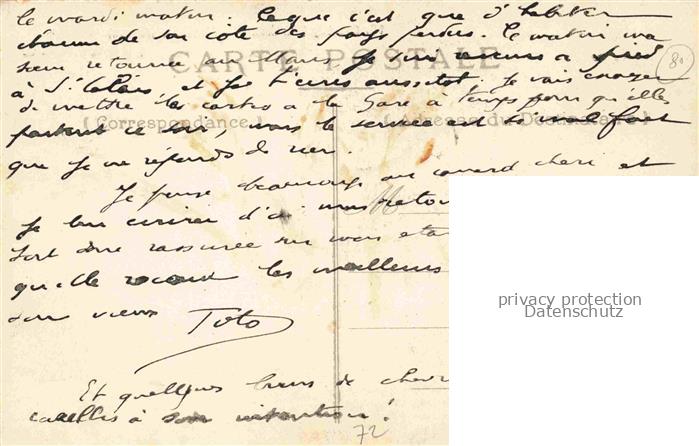 le mardi matin. Ce que c'est que d'habiter
chacun de son côté des pays perdus. Ce matin ma
soeur retourne au Mans je suis revenu à pied
CARTE POSTALE
80
à St Calais et je t'écris aussitôt. Je vais essayer
de mettre les cartes à la Gare à temps pour qu'elles
partent ce soir, mais le service est si mal fait
(Correspondance)
que je ne réponds de rien.
Je pense beaucoup au canard chéri et
je lui écrirai d'ici mon retour
soit donc rassurée sur mon
qu'elle reçoive les meilleurs
privacy protection
Datenschutz
son vieux Toto
Et quelques brins de
cueillis à son intention!
72